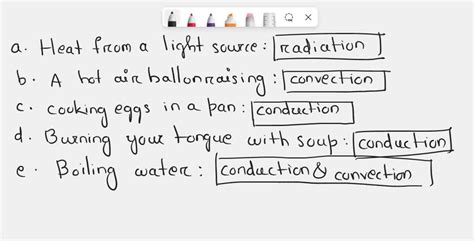 a. Heat from a light source: radiation
b. A hot air ballonraising: convection
c. cooking eggs in a pan: conduction
d. Burning your tongue with soup: conduction
e. Boiling water: conduction & convection